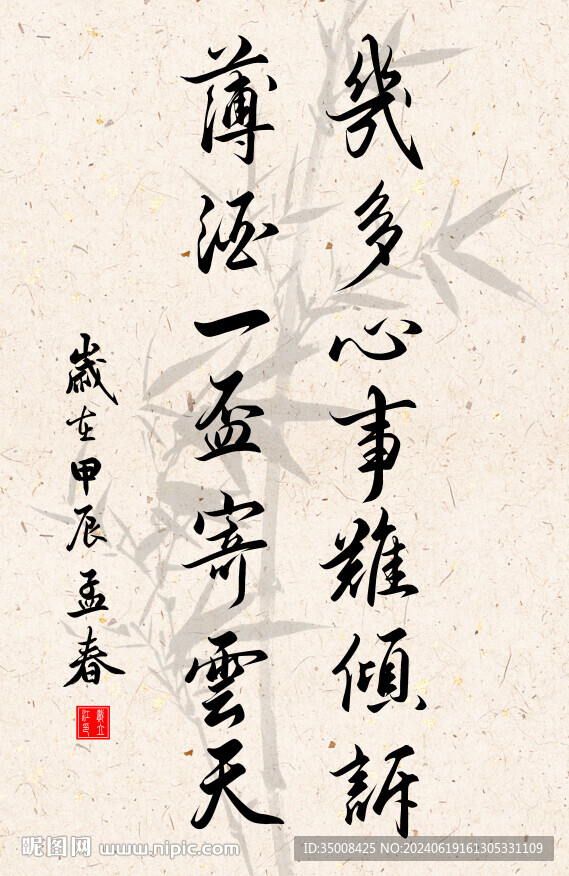 幾多心事難傾訴
薄酒一盃寄雲天
歲在甲辰孟春
昵图网 www.nipic.com
ID:35008425 NO:20240619161305331109